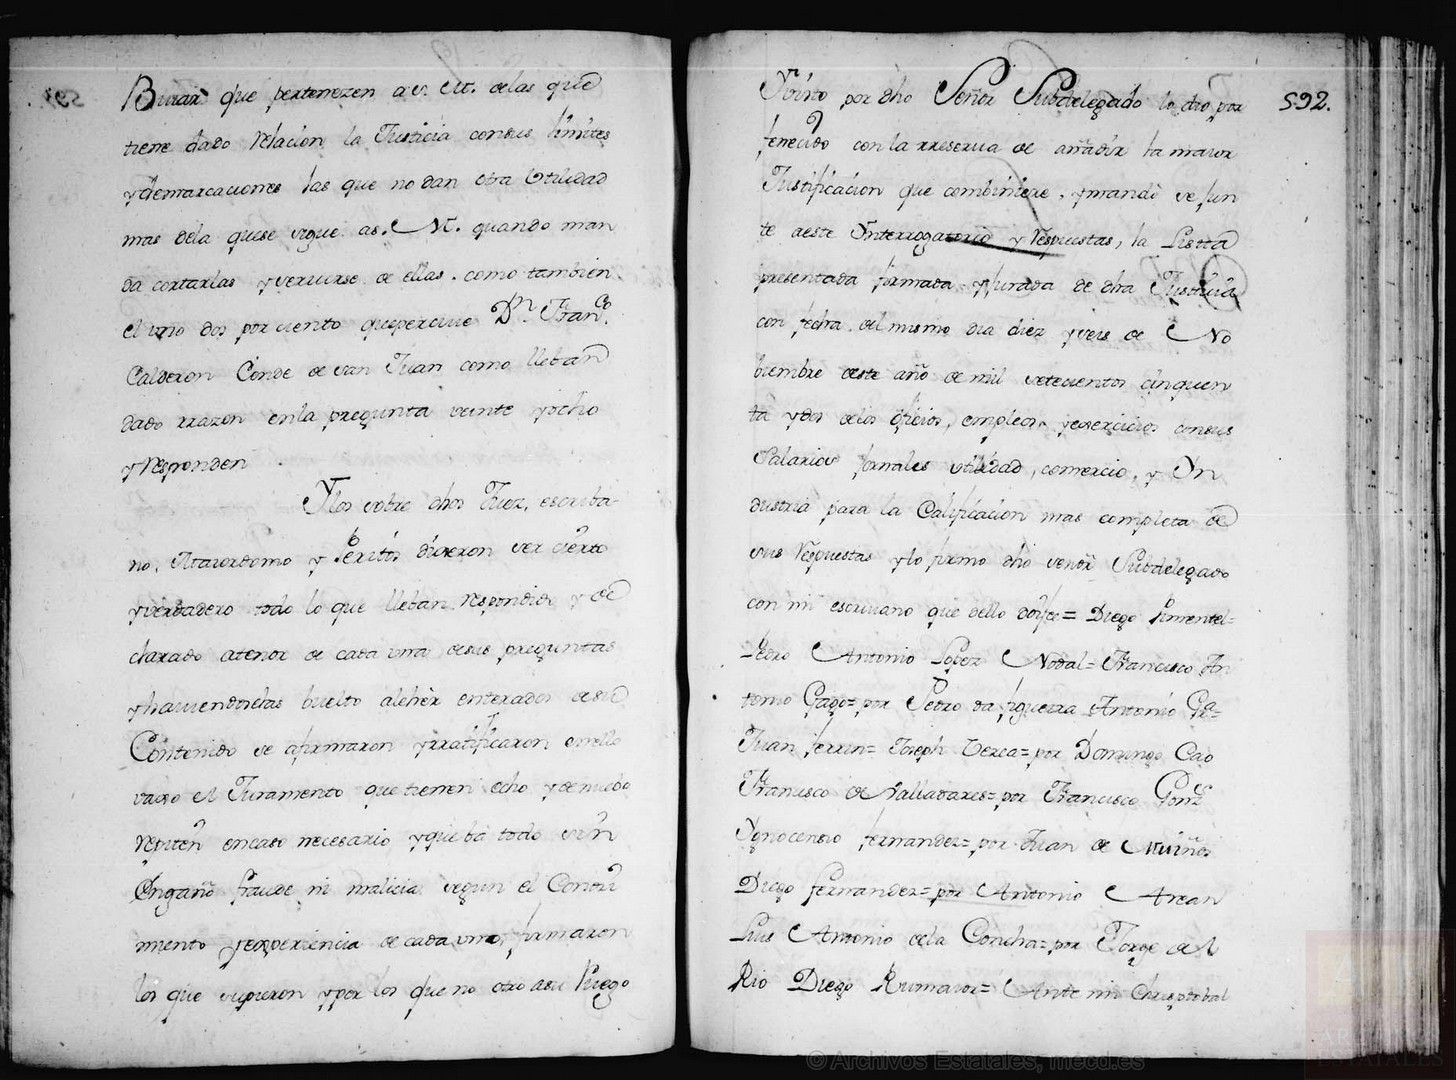 que pertenezen a S. M. delas que
tiene dado Relacion la Justicia consus limites
y demarcaciones las que no dan otra Utilidad
mas dela quese sigue as. M. quando man
da cortarlas y servirse de ellas. como tambien
el uno dos por ciento quepercive Dn. Franco.
Calderon Conde de san Juan como lleban
dado rrazon enla pregunta veinte yocho
y Responden
Ylos sobre dhos Juez, escriba
no, Maiordomo y Peritos dixeron ser cierto
yverdadero todo lo que lleban respondido y de
clarado atenor de cada una desus preguntas
yhaviendoselas buelto aleher enterados desu
Contenido se afirmaron yrratificaron enello
vaxo el Juramento que tienen echo y denuebo
Repiten encaso necesario yqueba todo sin
Engaño fraude ni malicia segun el Conozi
miento yexperiencia de cada uno, firmaron
los que supieron ypor los que no otro asu Ruego
592.
Visto por dho Señor Subdelegado lo dio por
fenecido con la rreserva de añadir la maior
Justificacion que combiniere, ymandò se jun
te aeste Ynterrogatorio y Respuestas, la Listta
presentada firmada yJurada de dha Justicia
con fecha del mismo dia diez yseis de No
biembre deste año de mil setecientos cinquen
ta ydos delos oficios, empleos, yexercicios consus
Salarios Jornales utilidad, comercio, y Yn
dustria para la Calificacion mas completa de
sus Respuestas ylo firmo dho señor Subdelegado
con mi escrivano que dello doyfee= Diego Pimentel=
Pedro Antonio Lopez Nodal= Francisco An
tonio Gago= por Pedro da figueira Antonio Ga=
Juan ferrin= Joseph Cerca= por Domingo Cao
Francisco de Valladares= por Francisco Gonz
Ygnocensio fernandez= por Juan de Muiños
Diego fernandez= por Antonio Arean
Luis Antonio dela Concha= por Jorge del
Rio Diego Rumavor= Ante mi Christobal
© Archivos Estatales, mecd.es